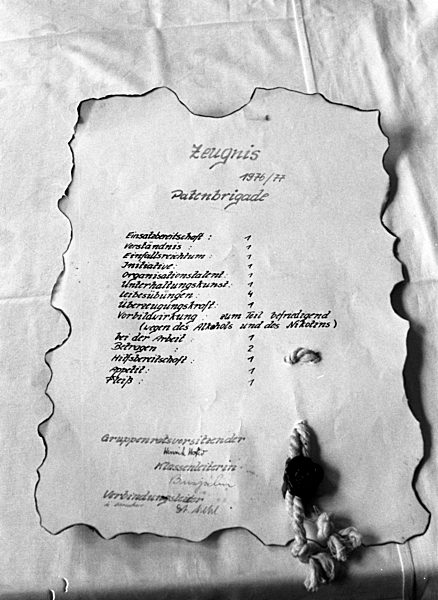 Zeugnis
1976/77
Patenbrigade
Einsatzbereitschaft : 1
Verständnis : 1
Einfallsreichtum : 1
Initiative : 1
Organisationstalent : 1
Unterhaltungskunst : 1
Leibesübungen : 4
Überzeugungskraft : 1
Vorbildwirkung : zum Teil befriedigend
(wegen des Alkohols und des Nikotins)
bei der Arbeit : 1
Betragen : 2
Hilfsbereitschaft : 1
Appetit : 1
Fleiß : 1
Gruppenratsvorsitzender
Klassenleiterin
Verbindungsleiter